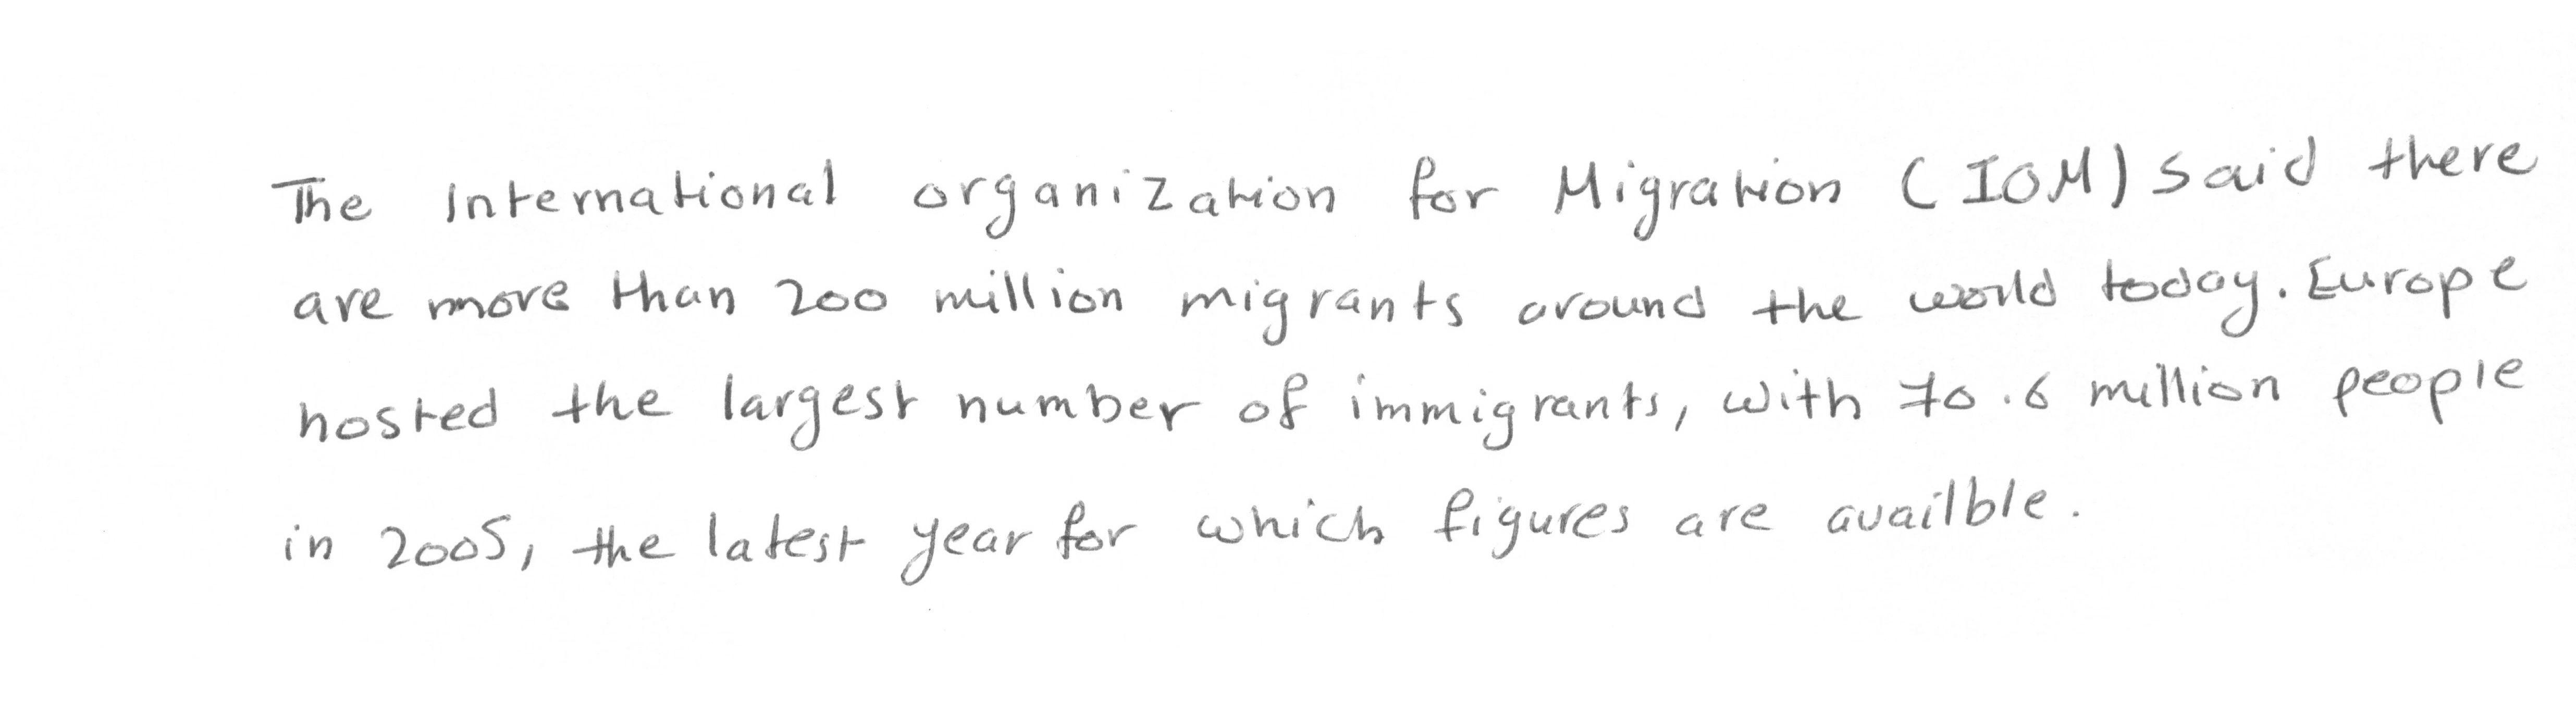 The International organization for Migration (IOM) said there
are more than 200 million migrants around the world today. Europe
hosted the largest number of immigrants, with 70.6 million people
in 2005, the latest year for which figures are availble.